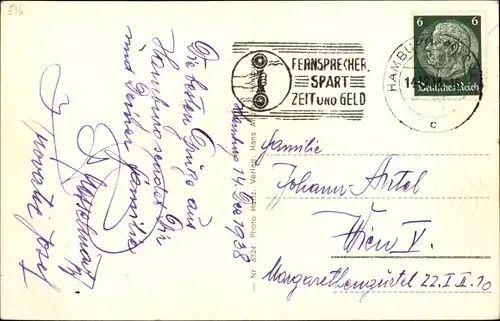 596
Die besten Grüße aus
Hamburg sendet Dir
und Deiner Familie
Josef
Hamburg 14. Dez 1938
Nr. 6524 Photo Hartz. Verlag: Hans
FERNSPRECHER
SPART
ZEIT UND GELD
HAMBURG
14.
c
6
Deutsches Reich
Familie
Johann Antel
Wien V.
Margarethengürtel 22. I. II. 10